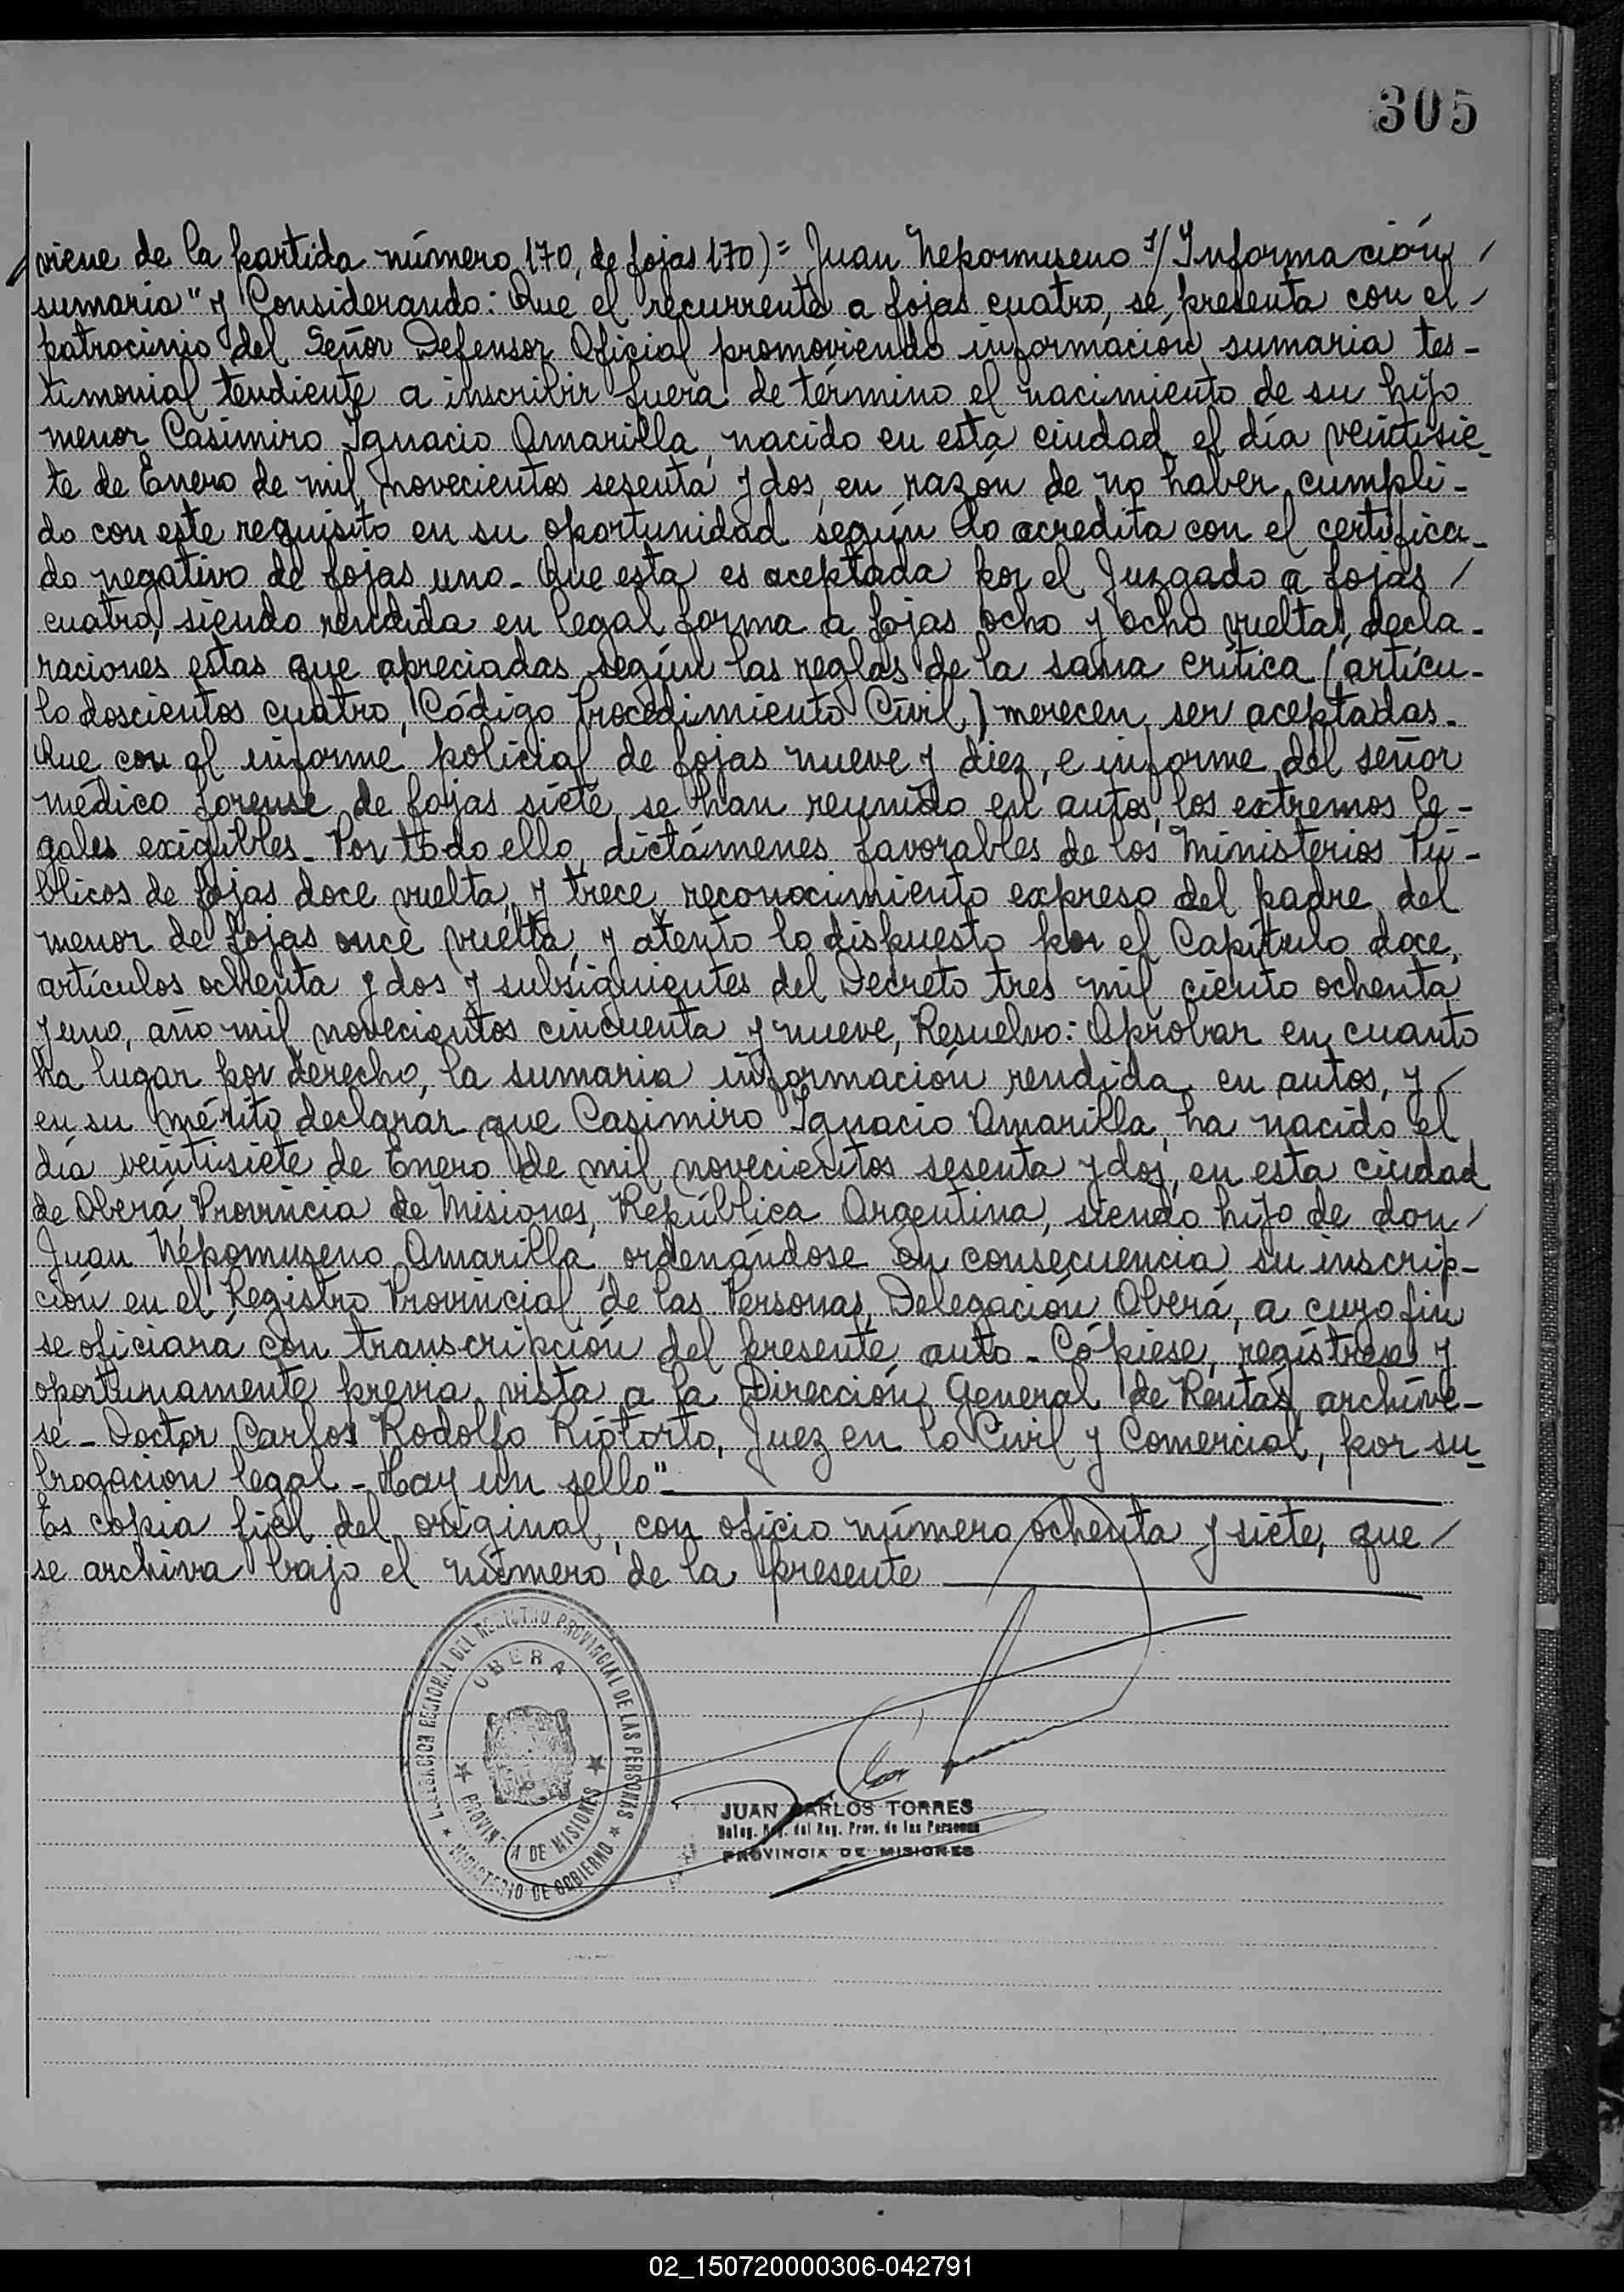 305
viene de la partida número 170, de fojas 170) = Juan Nepomuseno s/ Información /
sumaria" y Considerando: Que el recurrente a fojas cuatro, se presenta con el /
patrocinio del Señor Defensor Oficial promoviendo información sumaria tes-
timonial tendiente a inscribir fuera de término el nacimiento de su hijo
menor Casimiro Ignacio Amarilla, nacido en esta ciudad el día veintisie-
te de Enero de mil novecientos sesenta y dos, en razón de no haber cumpli-
do con este requisito en su oportunidad según lo acredita con el certifica-
do negativo de fojas uno - Que esta es aceptada por el Juzgado a fojas /
cuatro, siendo rendida en legal forma a fojas ocho y ocho vueltas, decla-
raciones estas que apreciadas según las reglas de la sana crítica (artícu-
lo doscientos cuatro, Código Procedimiento Civil) merecen ser aceptadas.
Que con el informe policial de fojas nueve y diez, e informe del señor
médico forense de fojas siete, se han reunido en autos, los extremos le-
gales exigibles - Por todo ello, dictámenes favorables de los Ministerios Pú-
blicos de fojas doce vuelta, y trece reconocimiento expreso del padre del
menor de fojas once vuelta, y atento lo dispuesto por el Capítulo doce,
artículos ochenta y dos y subsiguientes del Decreto tres mil ciento ochenta
y uno, año mil novecientos cincuenta y nueve, Resuelvo: Aprobar en cuanto
ha lugar por derecho, la sumaria información rendida en autos, y
en su mérito declarar que Casimiro Ignacio Amarilla, ha nacido el
día veintisiete de Enero de mil novecientos sesenta y dos, en esta ciudad
de Oberá, Provincia de Misiones, República Argentina, siendo hijo de don /
Juan Nepomuseno Amarilla, ordenándose en consecuencia su inscrip-
ción en el Registro Provincial de las Personas, Delegación Oberá, a cuyo fin
se oficiará con transcripción del presente auto - Cópiese, regístrese y
oportunamente previa vista a la Dirección General de Rentas, archíve-
se - Doctor Carlos Rodolfo Riotorto, Juez en lo Civil y Comercial, por su-
brogación legal - Hay un sello" -
Es copia fiel del original, con oficio número ochenta y siete, que /
se archiva bajo el número de la presente
DELEGACION REGIONAL DEL REGISTRO PROVINCIAL DE LAS PERSONAS
OBERA
PROVINCIA DE MISIONES
MINISTERIO DE GOBIERNO
JUAN CARLOS TORRES
Deleg. Reg. del Reg. Prov. de las Personas
PROVINCIA DE MISIONES
02_150720000306-042791